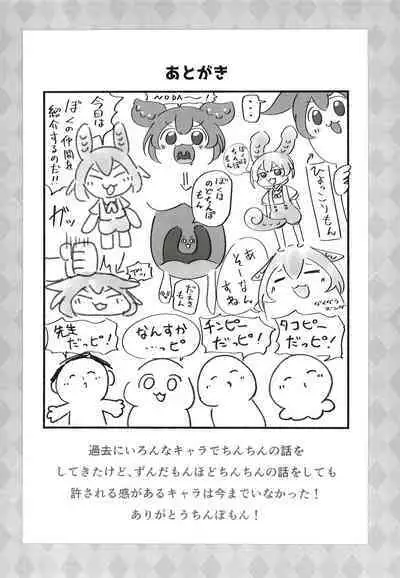 あとがき
今日は
ぼくの仲間を
紹介するのだ!!
~NODA~~
・・・
ひょっこりもん
ぼくは
のどちんぽ
もん
ガッ
あ
そーなん
すね
先生
だっピ!
なんすか
…っピ
チンピー
だっピ!
タコピー
だっピ!
過去にいろんなキャラでちんちんの話を
してきたけど、ずんだもんほどちんちんの話をしても
許される感があるキャラは今までいなかった!
ありがとうちんぽもん!